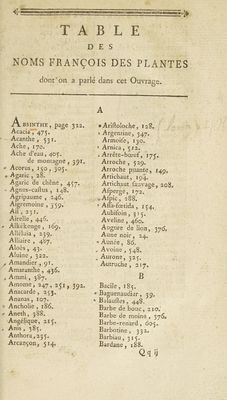 TABLE
DES
NOMS FRANÇOIS DES PLANTES
dont on a parlé dans cet Ouvrage.
A
ABSINTHE, page 322.
Acacia, 475.
Acanthe, 531.
Ache, 170.
Ache d'eau, 405.
de montagne, 391.
Acorus, 150, 395.
Agaric, 28.
Agaric de chêne, 457.
Agnus-castus, 148.
Agripaume, 246.
Aigremoine, 359.
Ail, 251.
Airelle, 446.
Alkékenge, 169.
Alléluia, 239.
Alliaire, 487.
Aloès, 43.
Aluine, 322.
Amandier, 91.
Amaranthe, 436.
Ammi, 387.
Amome, 247, 251, 392.
Anacarde, 253.
Ananas, 107.
Ancholie, 186.
Aneth, 388.
Angélique, 215.
Anis, 385.
Anthora, 235.
Arcançon, 514.
Aristoloche, 128.
Argentine, 547.
Armoise, 130.
Arnica, 512.
Arrête-bœuf, 175.
Arroche, 529.
Arroche puante, 149.
Artichaut, 194.
Artichaut sauvage, 208.
Asperge, 172.
Aspic, 288.
Assa-fœtida, 154.
Aubifoin, 315.
Aveline, 460.
Augure de lion, 376.
Aune noir, 24.
Aunée, 86.
Avoine, 548.
Aurone, 325.
Autruche, 217.
B
Bacile, 185.
Baguenaudier, 39.
Balaustes, 448.
Barbe de bouc, 210.
Barbe de moine, 376.
Barbe-renard, 605.
Barbotine, 332.
Barbiau, 315.
Bardane, 188.
Qq ij